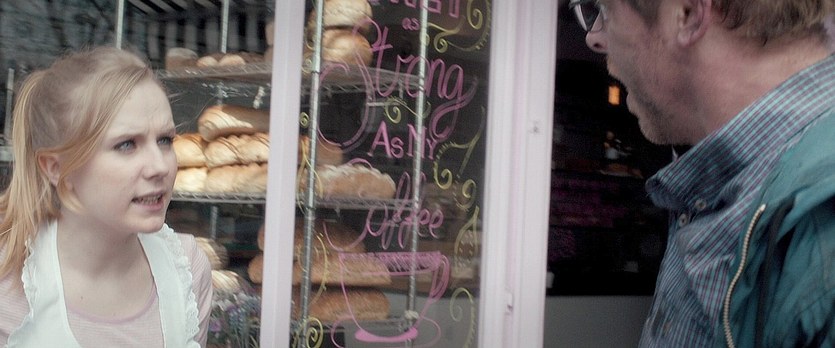 as
Strong
As My
Coffee